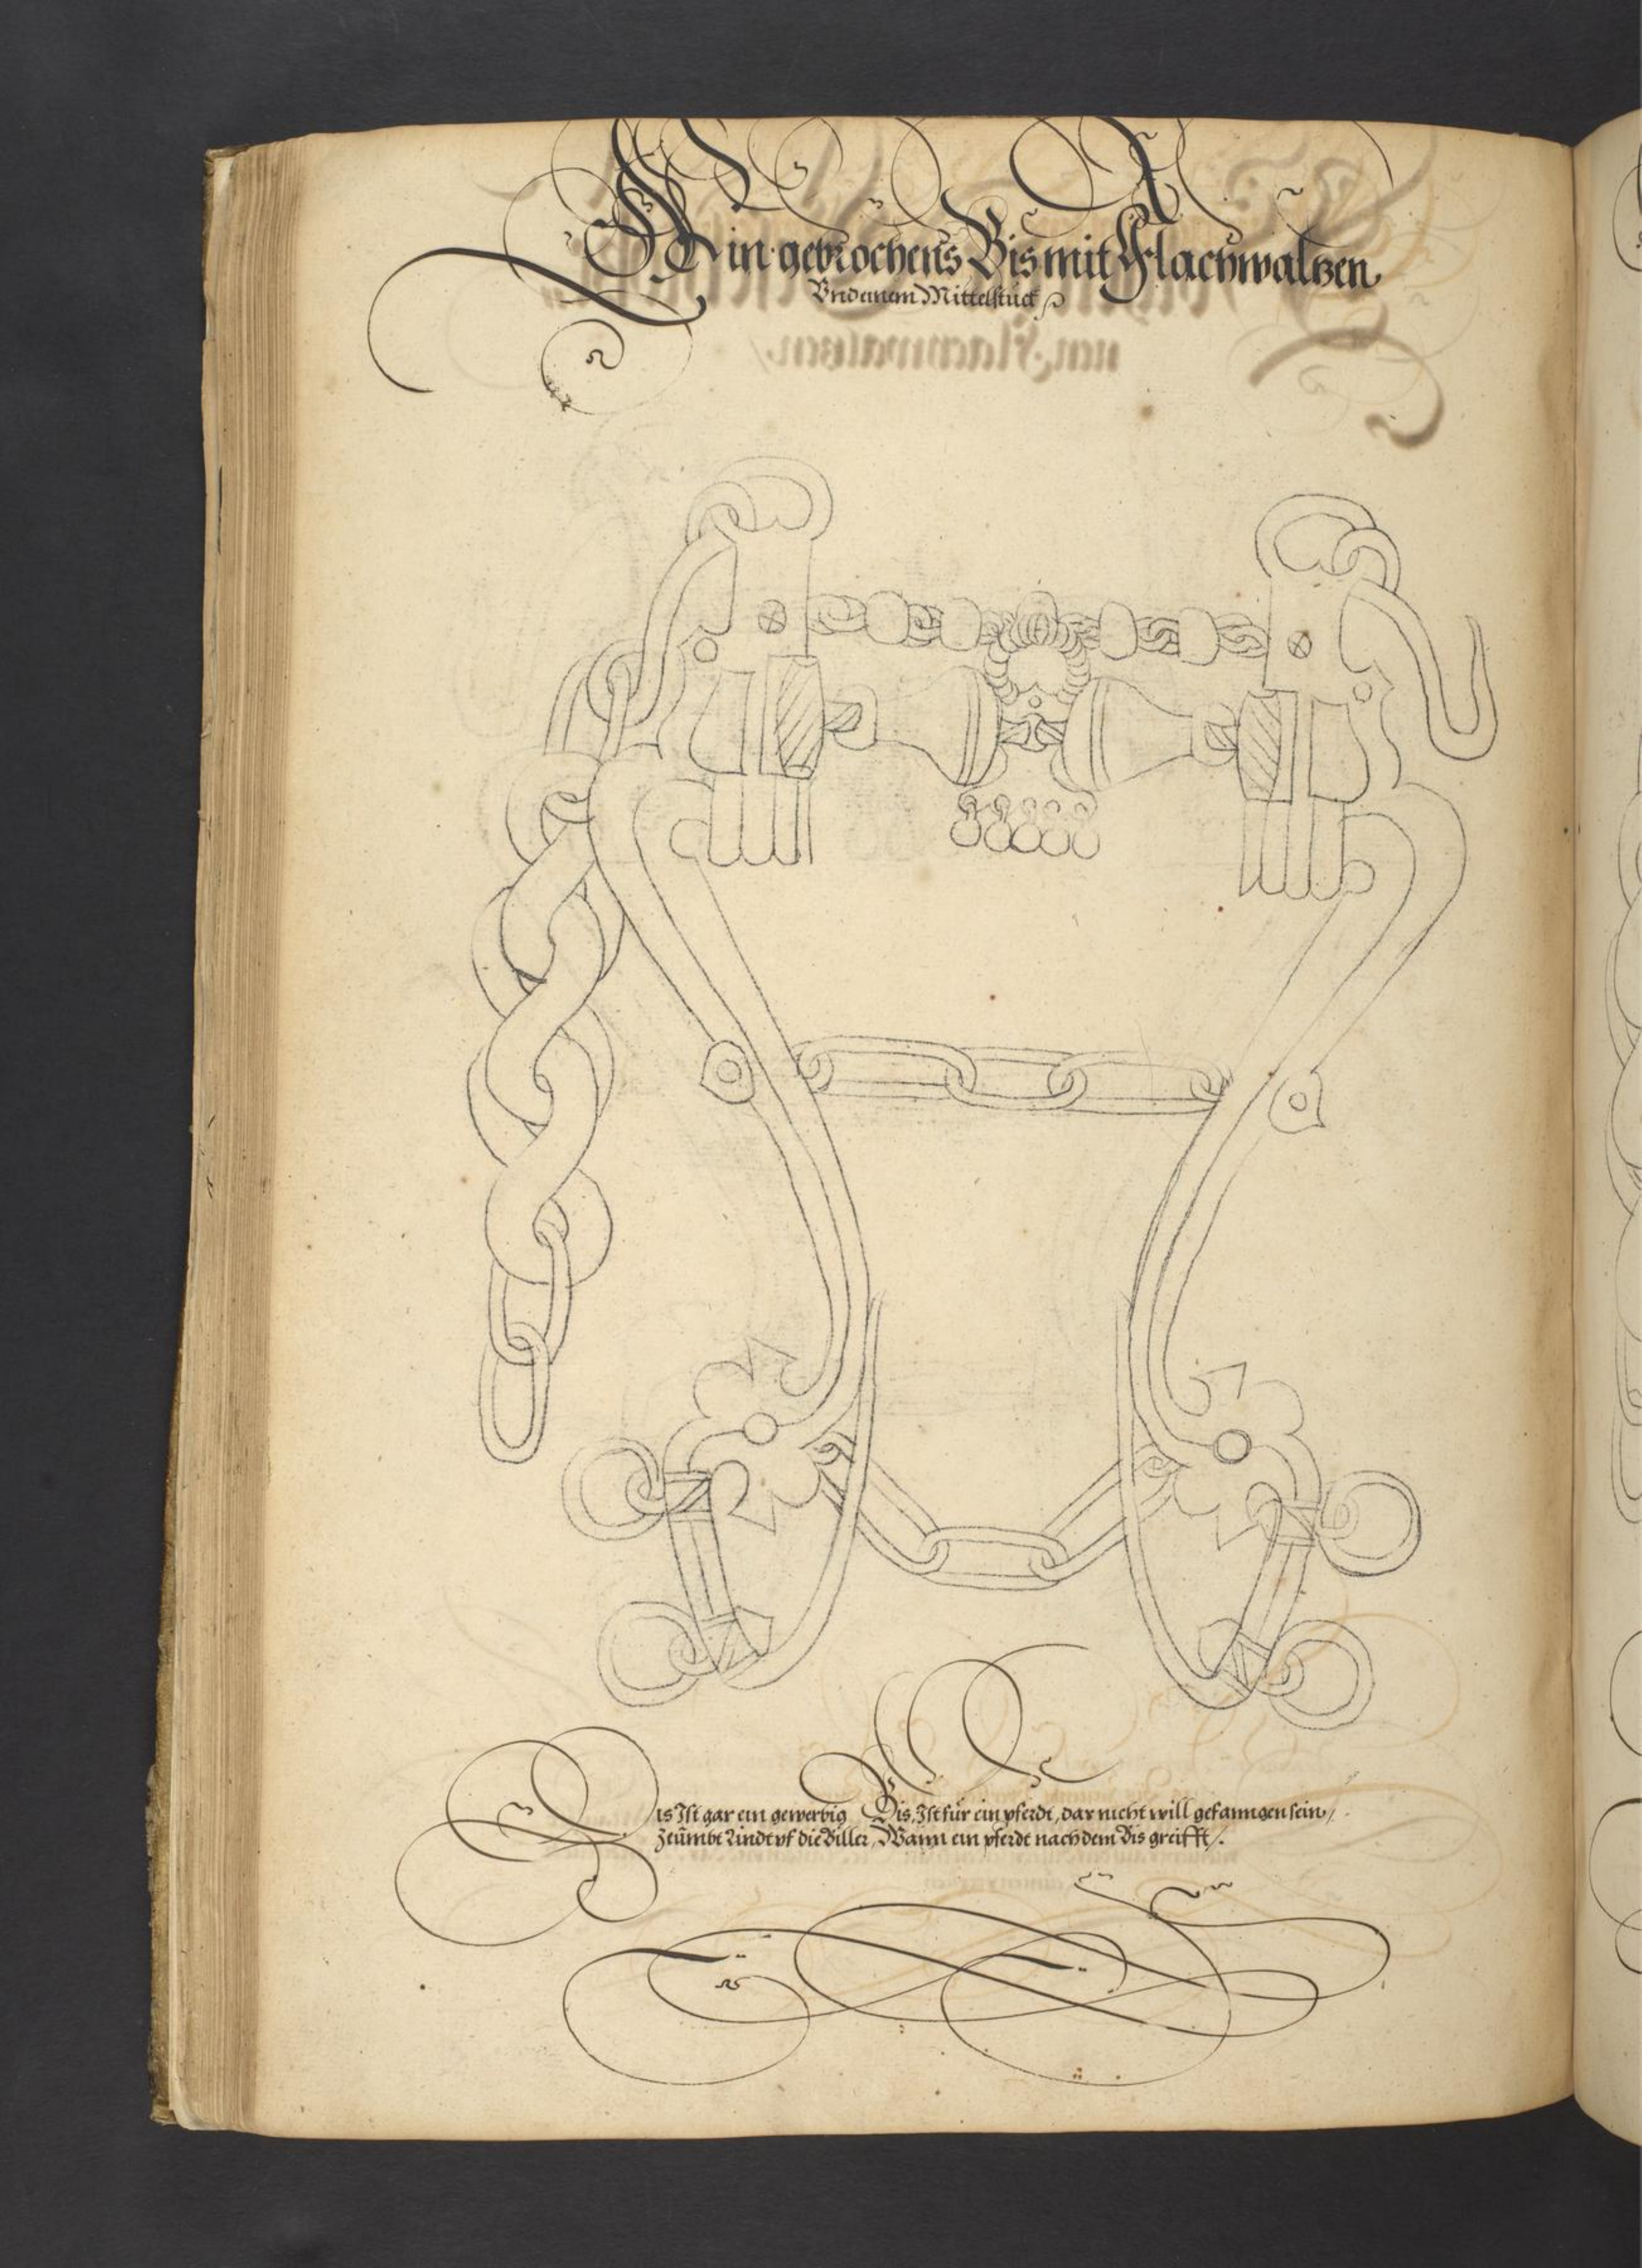 Ein gebrochens Bis mit Flachwaltzen
Vnd einem Mittelstück
Dis Ist gar ein gewerbig Bis, Ist für ein pferdt, dar nicht will gefanngen sein,
Zeümbt Lindt vf die Biller, Wann ein pferdt nach dem Bis greifft.